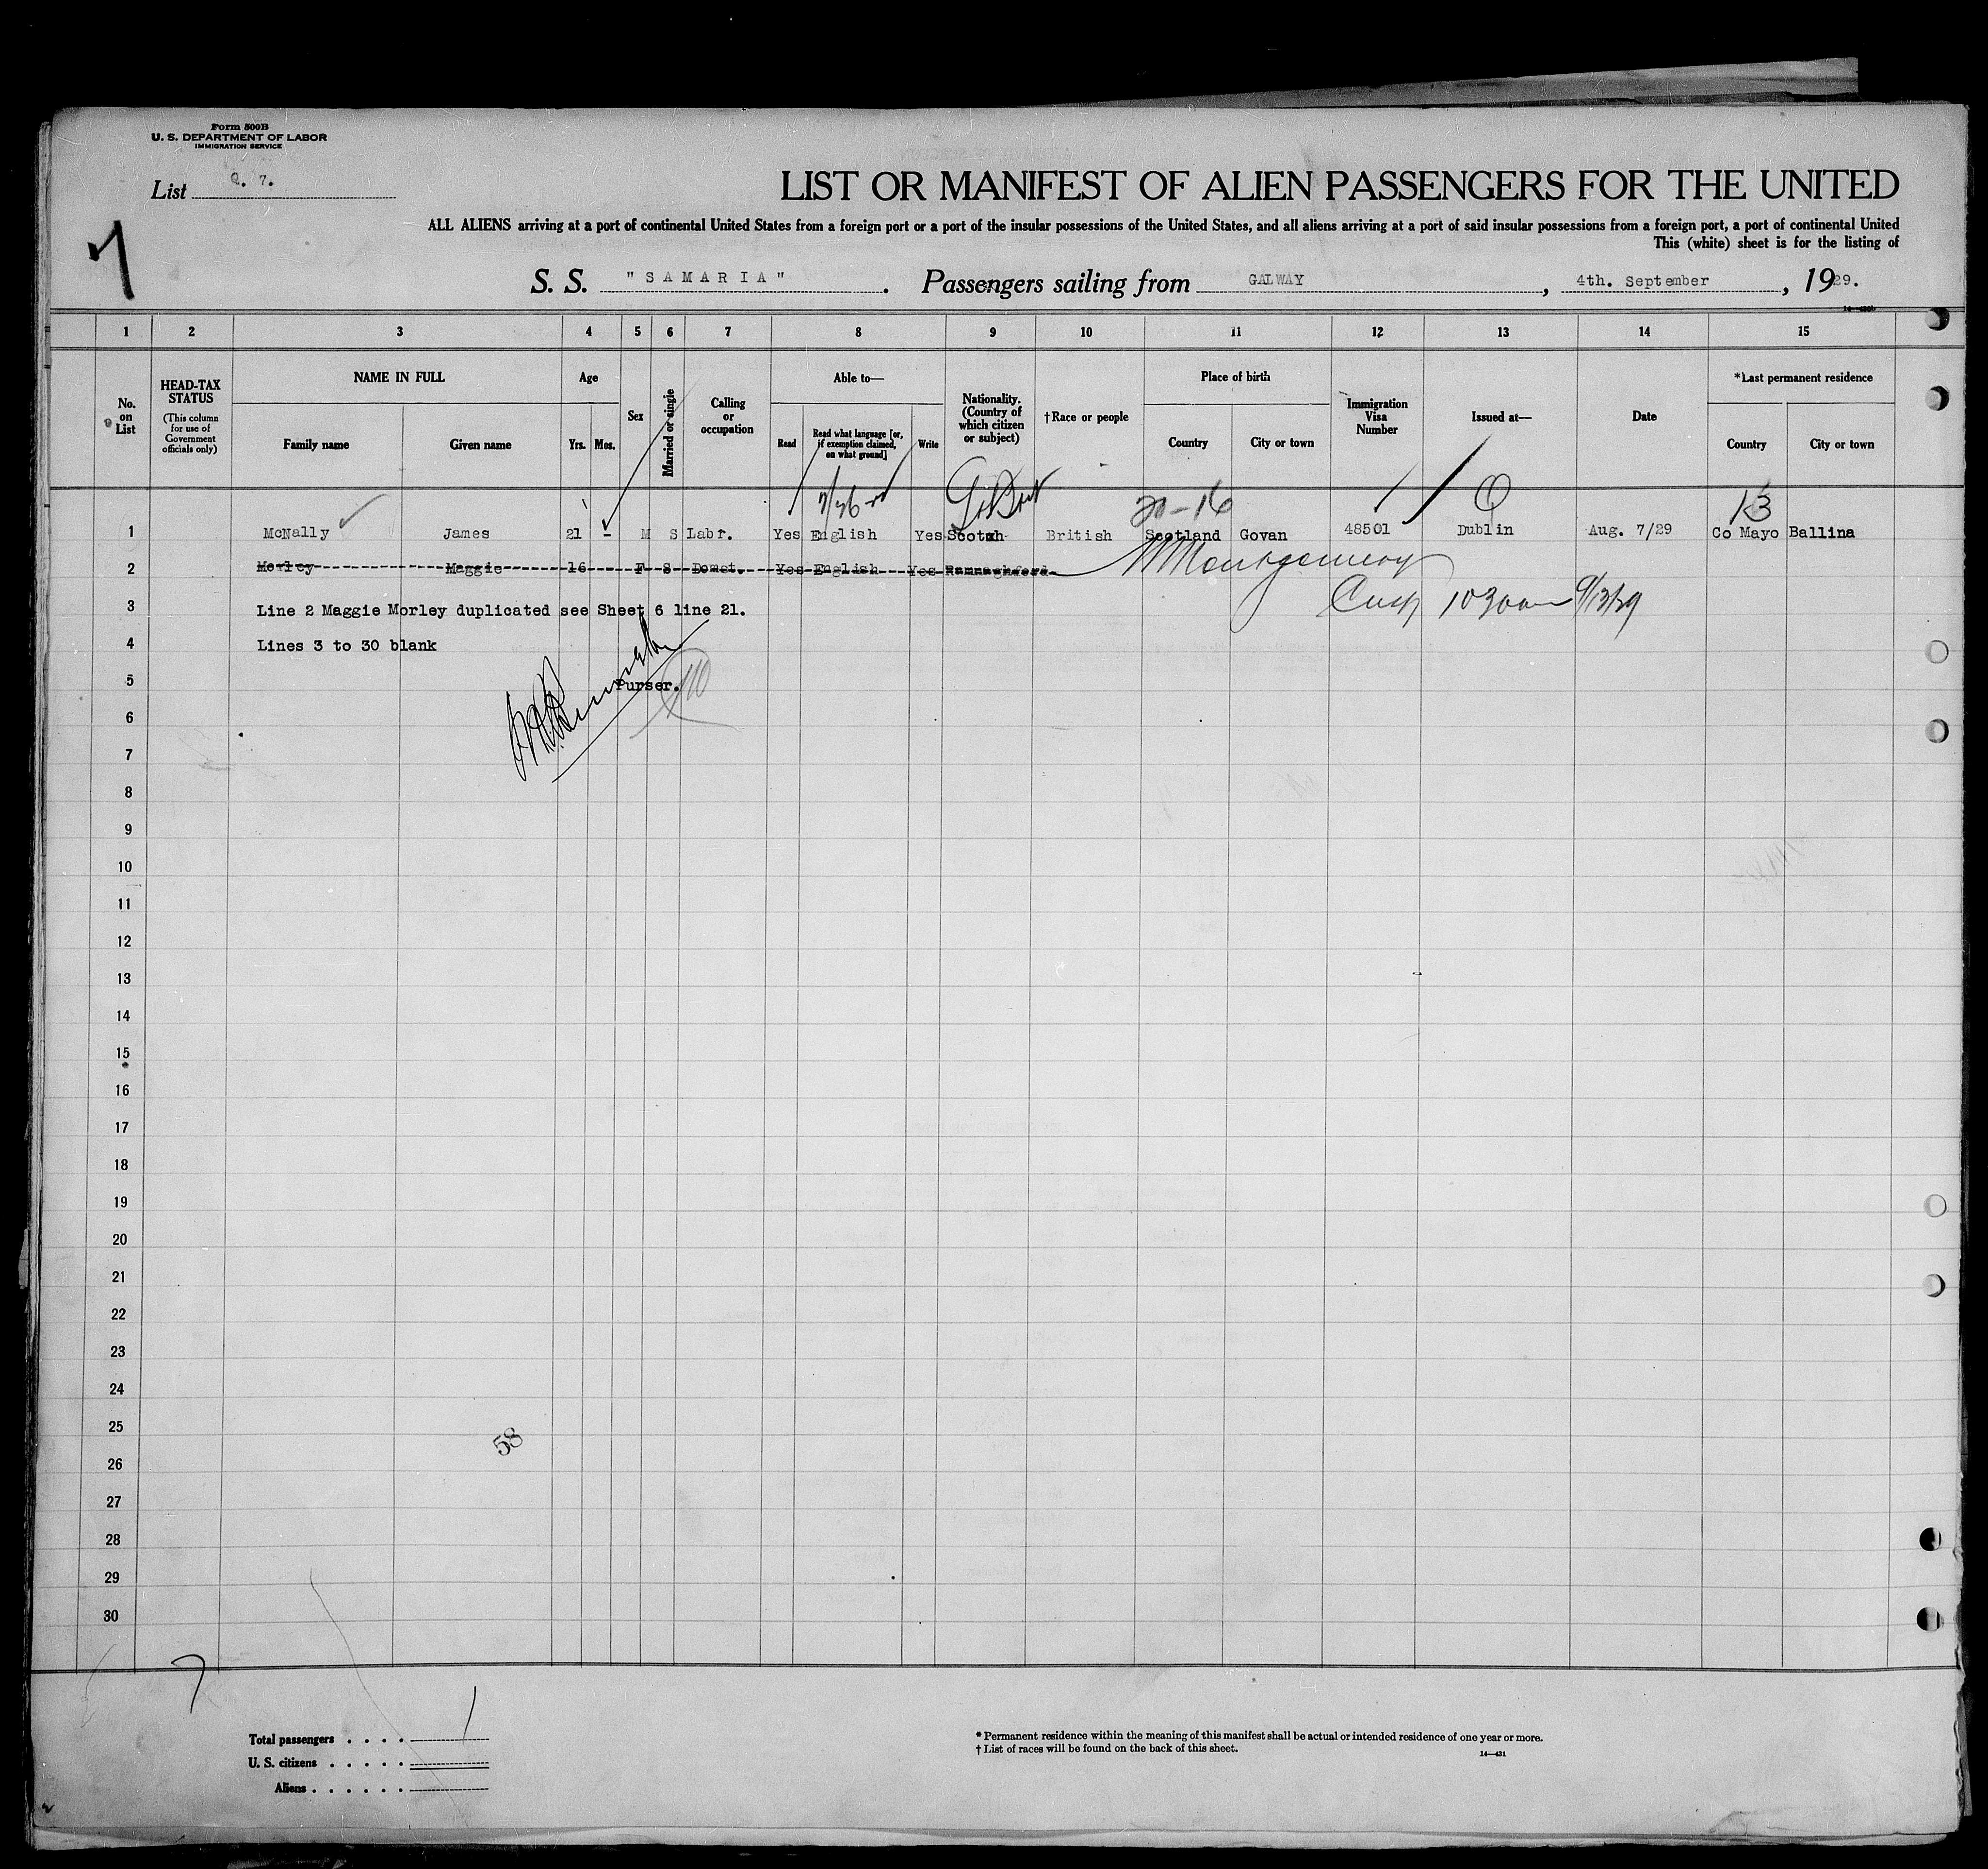 Form 500B
U. S. DEPARTMENT OF LABOR
IMMIGRATION SERVICE
List Q. 7.
7
LIST OR MANIFEST OF ALIEN PASSENGERS FOR THE UNITED
ALL ALIENS arriving at a port of continental United States from a foreign port or a port of the insular possessions of the United States, and all aliens arriving at a port of said insular possessions from a foreign port, a port of continental United
This (white) sheet is for the listing of
S. S. "SAMARIA". Passengers sailing from GALWAY, 4th. September, 1929.
1 2 3 4 5 6 7 8 9 10 11 12 13 14 15
No. on List
HEAD-TAX STATUS (This column for use of Government officials only)
NAME IN FULL Family name Given name
Age Yrs. Mos.
Sex
Married or single
Calling or occupation
Able to— Read Read what language [or, if exemption claimed, on what ground] Write
Nationality. (Country of which citizen or subject)
†Race or people
Place of birth Country City or town
Immigration Visa Number
Issued at—
Date
*Last permanent residence Country City or town
20-16 13
1 McNally James 21 - M S Labr. Yes English Yes Scotch British Scotland Govan 48501 Dublin Aug. 7/29 Co Mayo Ballina
2 Morley Maggie 16 F S Domst. Yes English Yes
Montgomery
3 Line 2 Maggie Morley duplicated see Sheet 6 line 21.
1030am 9/13/29
4 Lines 3 to 30 blank
5 Purser.
6
7
8
9
10
11
12
13
14
15
16
17
18
19
20
21
22
23
24
25
58
26
27
28
29
30
7
Total passengers . . . . 1
U. S. citizens . . . . .
Aliens . . . . . .
* Permanent residence within the meaning of this manifest shall be actual or intended residence of one year or more.
† List of races will be found on the back of this sheet.
14—431